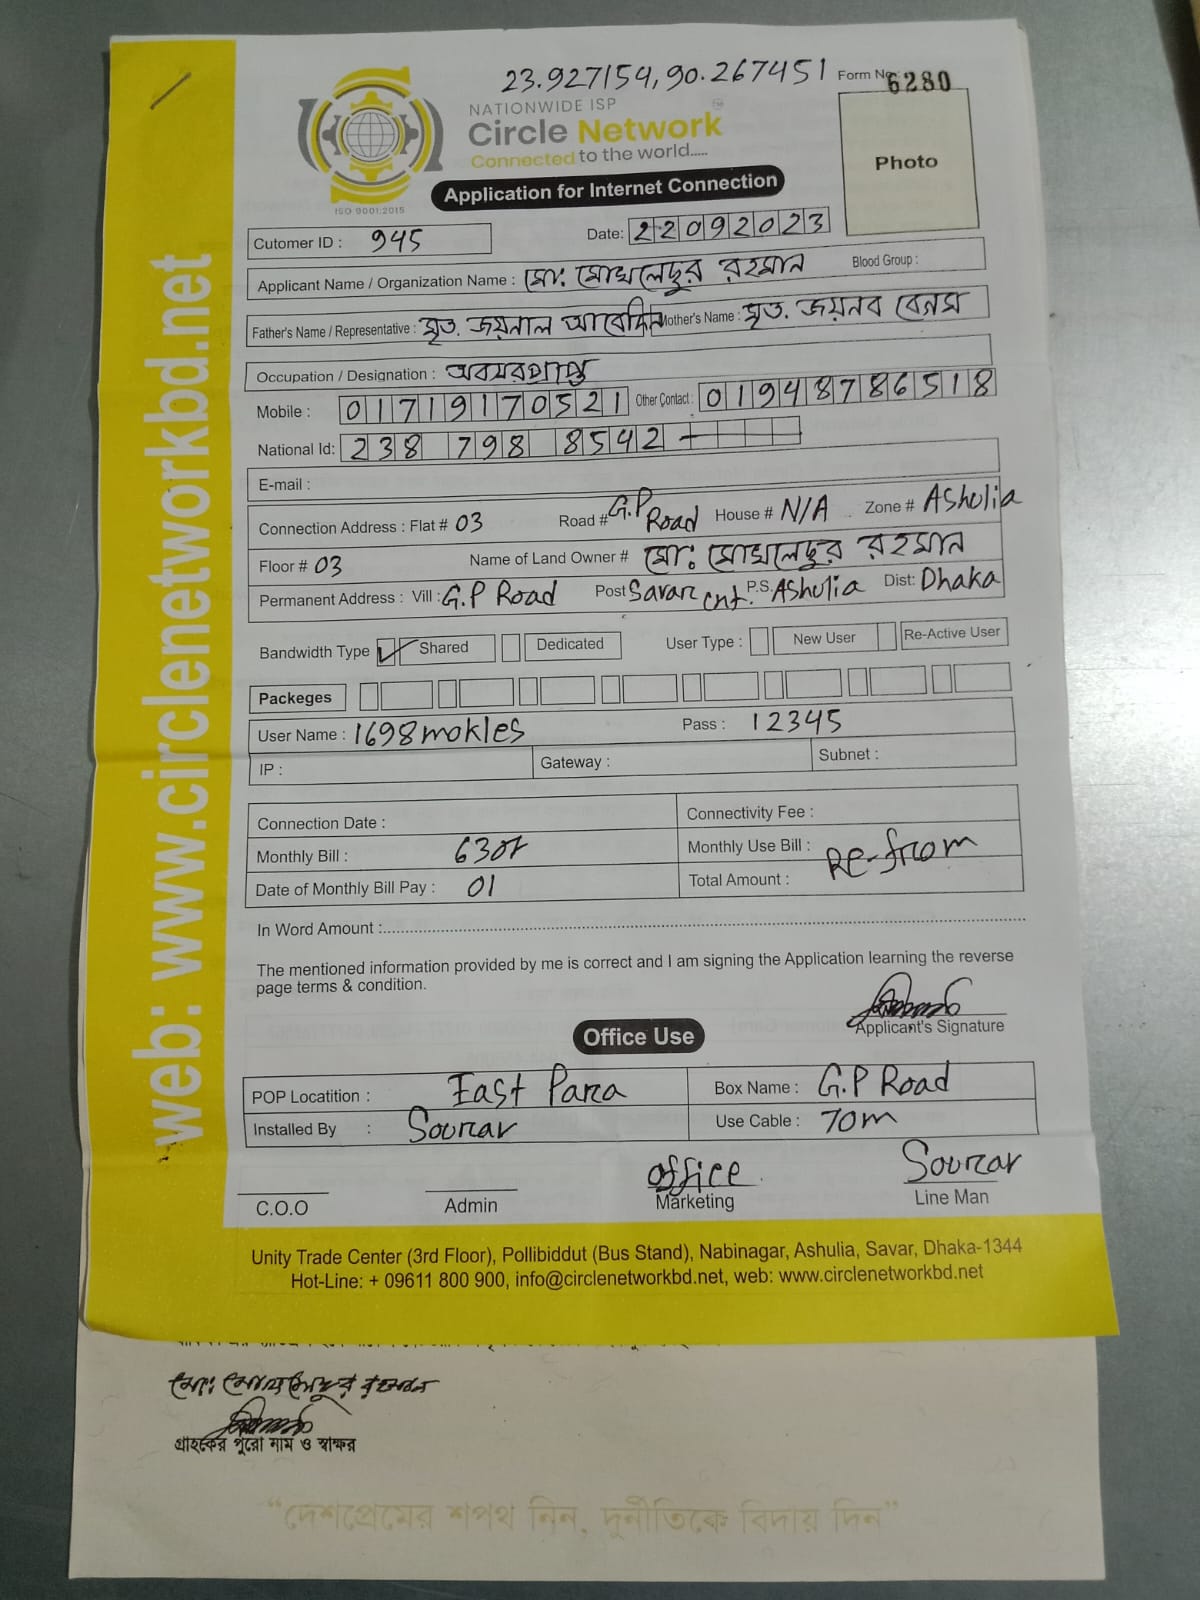 23.927154, 90.267451
Form No: 6280
NATIONWIDE ISP
Circle Network
Connected to the world.....
ISO 9001:2015
Photo
Application for Internet Connection
Cutomer ID : 945
Date: 22092023
Applicant Name / Organization Name : মো: মোখলেছুর রহমান Blood Group :
Father's Name / Representative : মৃত. জয়নাল আবেদিন Mother's Name : মৃত. জয়নব বেগম
Occupation / Designation : অবসরপ্রাপ্ত
Mobile : 01719170521 Other Contact : 01948786518
National Id: 238 798 8542
E-mail :
Connection Address : Flat # 03 Road # G.P Road House # N/A Zone # Ashulia
Floor # 03 Name of Land Owner # মো: মোখলেছুর রহমান
Permanent Address : Vill : G.P Road Post Savar cnt. P.S. Ashulia Dist: Dhaka
Bandwidth Type Shared Dedicated User Type : New User Re-Active User
Packeges
User Name : 1698mokles Pass : 12345
IP : Gateway : Subnet :
Connection Date : Connectivity Fee :
Monthly Bill : 630 Monthly Use Bill : Re-from
Date of Monthly Bill Pay : 01 Total Amount :
In Word Amount :
The mentioned information provided by me is correct and I am signing the Application learning the reverse
page terms & condition.
Applicant's Signature
Office Use
POP Locatition : East Para Box Name : G.P Road
Installed By : Sourav Use Cable : 70m
C.O.O
Admin
office
Marketing
Sourav
Line Man
Unity Trade Center (3rd Floor), Pollibiddut (Bus Stand), Nabinagar, Ashulia, Savar, Dhaka-1344
Hot-Line: + 09611 800 900, info@circlenetworkbd.net, web: www.circlenetworkbd.net
web: www.circlenetworkbd.net
মো: মোখলেছুর রহমান
গ্রাহকের পুরো নাম ও স্বাক্ষর
“দেশপ্রেমের শপথ নিন, দুর্নীতিকে বিদায় দিন”